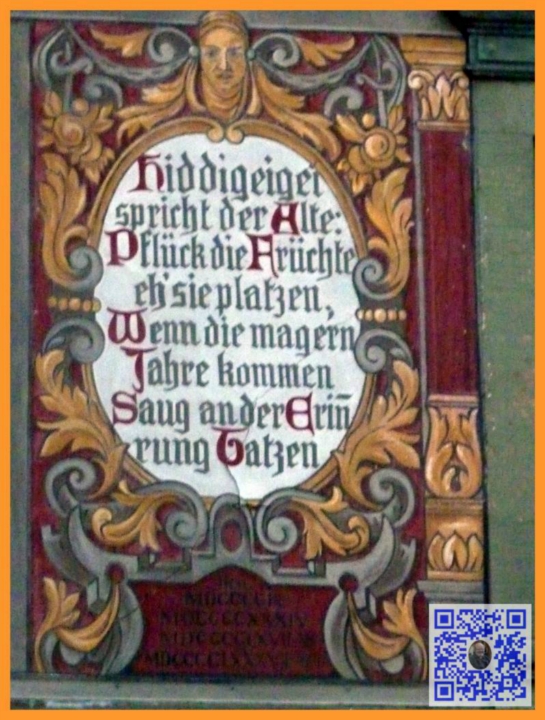 Hiddigeigei
spricht der Alte:
Pflück die Früchte
eh' sie platzen,
Wenn die magern
Jahre kommen
Saug an der Erin̄
rung Tatzen